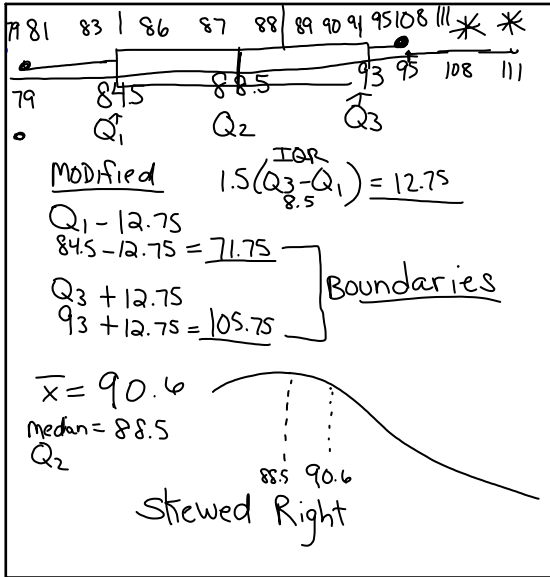 79 81 83 | 86 87 88 | 89 90 91 95 108 111 * *
79 84.5 88.5 93 95 108 111
Q1 Q2 Q3
Modified 1.5(Q3-Q1) = 12.75
IQR
8.5
Q1 - 12.75
84.5 - 12.75 = 71.75
Q3 + 12.75
93 + 12.75 = 105.75
Boundaries
x̄ = 90.6
median = 88.5
Q2
88.5 90.6
Skewed Right